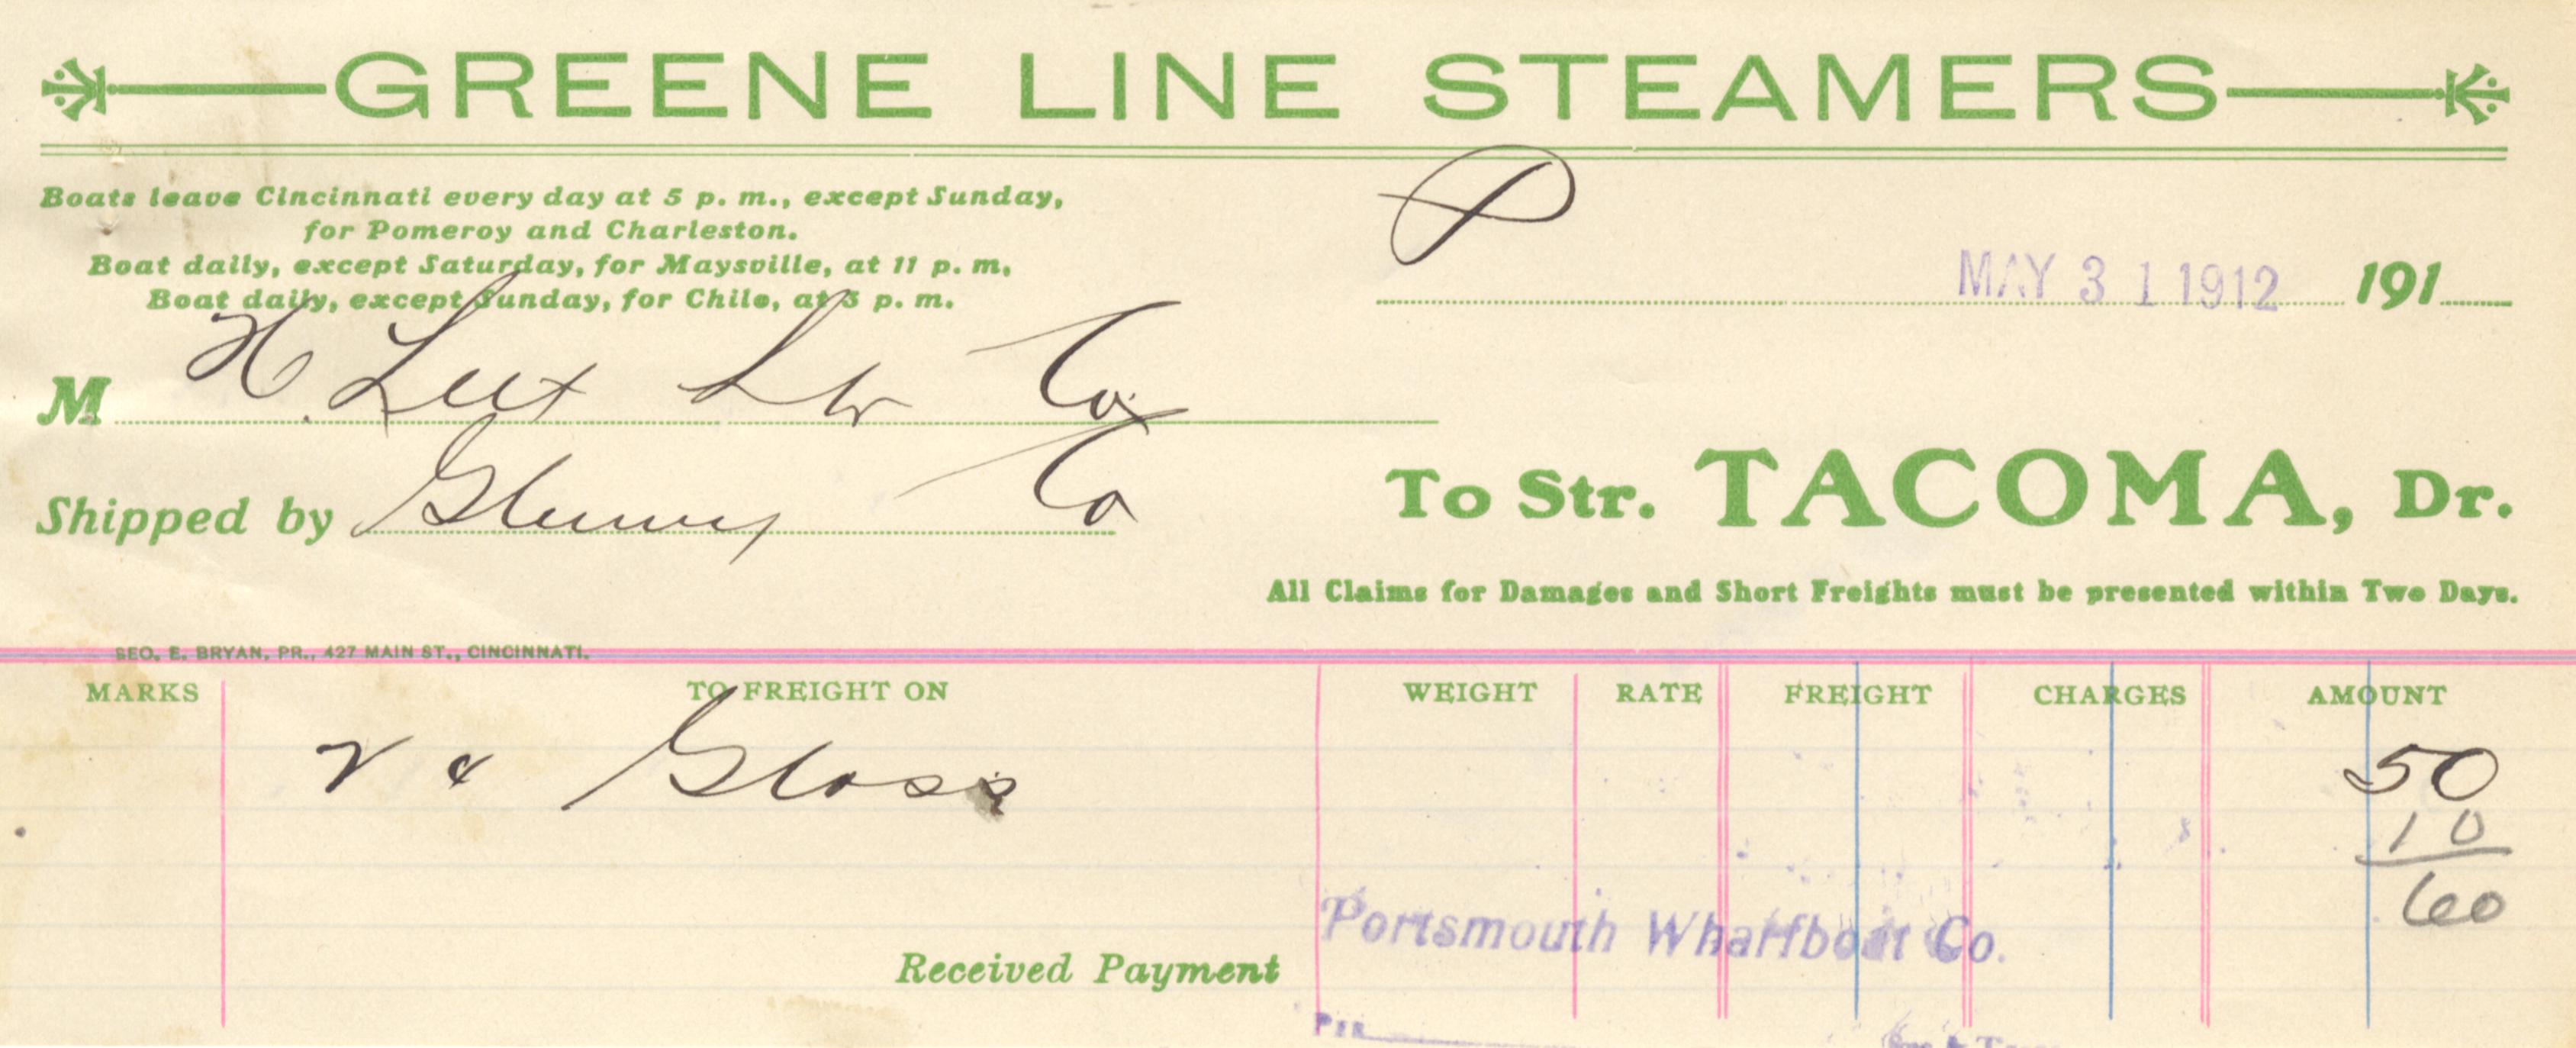 GREENE LINE STEAMERS
Boats leave Cincinnati every day at 5 p. m., except Sunday,
for Pomeroy and Charleston.
Boat daily, except Saturday, for Maysville, at 11 p. m.
Boat daily, except Sunday, for Chilo, at 3 p. m.
P
MAY 31 1912 191
M H. Leet Lbr Co.
Shipped by Co
To Str. TACOMA, Dr.
All Claims for Damages and Short Freights must be presented within Two Days.
GEO. E. BRYAN, PR., 427 MAIN ST., CINCINNATI.
MARKS TO FREIGHT ON WEIGHT RATE FREIGHT CHARGES AMOUNT
Glass 50
10
60
Received Payment Portsmouth Wharfboat Co.
PER